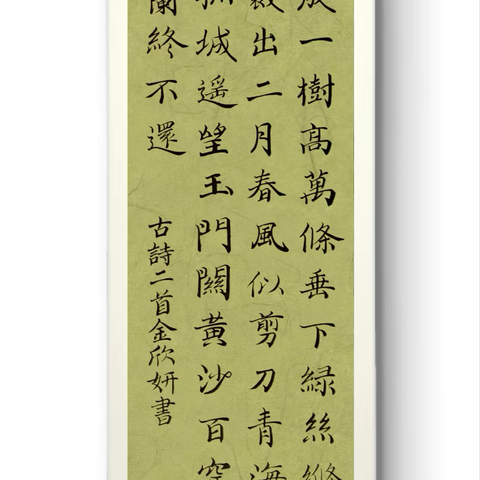 成一樹高萬條垂下綠絲縧
裁出二月春風似剪刀青海
孤城遙望玉門關黃沙百穿
蘭終不還
古詩二首金欣妍書